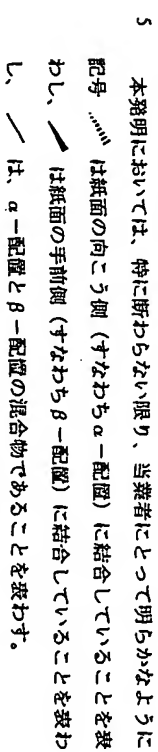 5 本発明においては、特に断わらない限り、当業者にとって明らかなように
記号 は紙面の向こう側（すなわちα－配置）に結合していることを表
わし、 は紙面の手前側（すなわちβ－配置）に結合していることを表わ
し、 は、α－配置とβ－配置の混合物であることを表わす。